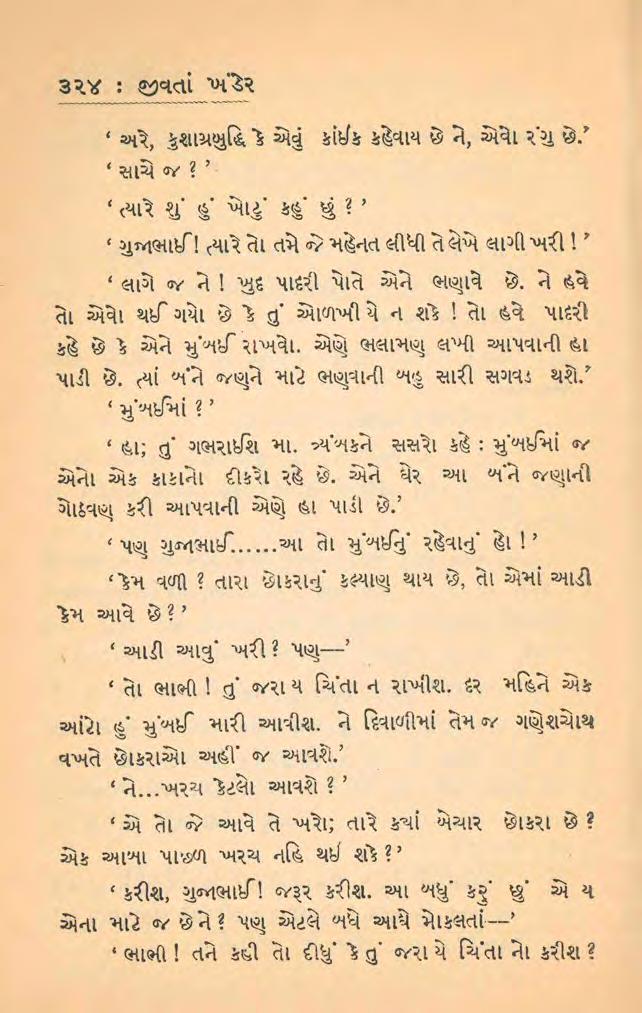 ૩૨૪ : જીવતાં ખંડેર
‘ અરે, કુશાગ્રબુદ્ધિ કે એવું કાંઈક કહેવાય છે ને, એવો રંગુ છે.’
‘ સાચે જ ? ’
‘ ત્યારે શું હું ખોટું કહું છું ? ’
‘ ગુજાભાઈ! ત્યારે તો તમે જે મહેનત લીધી તે લેખે લાગી ખરી ! ’
‘ લાગે જ ને ! ખુદ પાદરી પોતે એને ભણાવે છે. ને હવે
તો એવો થઈ ગયો છે કે તું ઓળખી યે ન શકે ! તો હવે પાદરી
કહે છે કે એને મુંબઈ રાખવો. એણે ભલામણ લખી આપવાની હા
પાડી છે. ત્યાં બંને જણને માટે ભણવાની બહુ સારી સગવડ થશે.’
‘ મુંબઈમાં ? ’
‘ હા; તું ગભરાઈશ મા. ત્ર્યંબકને સસરો કહે : મુંબઈમાં જ
એનો એક કાકાનો દીકરો રહે છે. એને ઘેર આ બંને જણાની
ગોઠવણ કરી આપવાની એણે હા પાડી છે.’
‘ પણ ગુજાભાઈ......આ તો મુંબઈનું રહેવાનું હો ! ’
‘કેમ વળી ? તારા છોકરાનું કલ્યાણ થાય છે, તો એમાં આડી
કેમ આવે છે ? ’
‘ આડી આવું ખરી ? પણ—’
‘ તો ભાભી ! તું જરા ય ચિંતા ન રાખીશ. દર મહિને એક
આંટો હું મુંબઈ મારી આવીશ. ને દિવાળીમાં તેમ જ ગણેશચોથ
વખતે છોકરાઓ અહીં જ આવશે.’
‘ ને...ખરચ કેટલો આવશે ? ’
‘ એ તો જે આવે તે ખરો; તારે ક્યાં બેચાર છોકરા છે ?
એક આખા પાછળ ખરચ નહિ થઈ શકે ? ’
‘ કરીશ, ગુજાભાઈ! જરૂર કરીશ. આ બધું કરું છું એ ય
એના માટે જ છે ને ? પણ એટલે બધે આઘે મોકલતાં—’
‘ ભાભી ! તને કહી તો દીધું કે તું જરા યે ચિંતા નો કરીશ ?